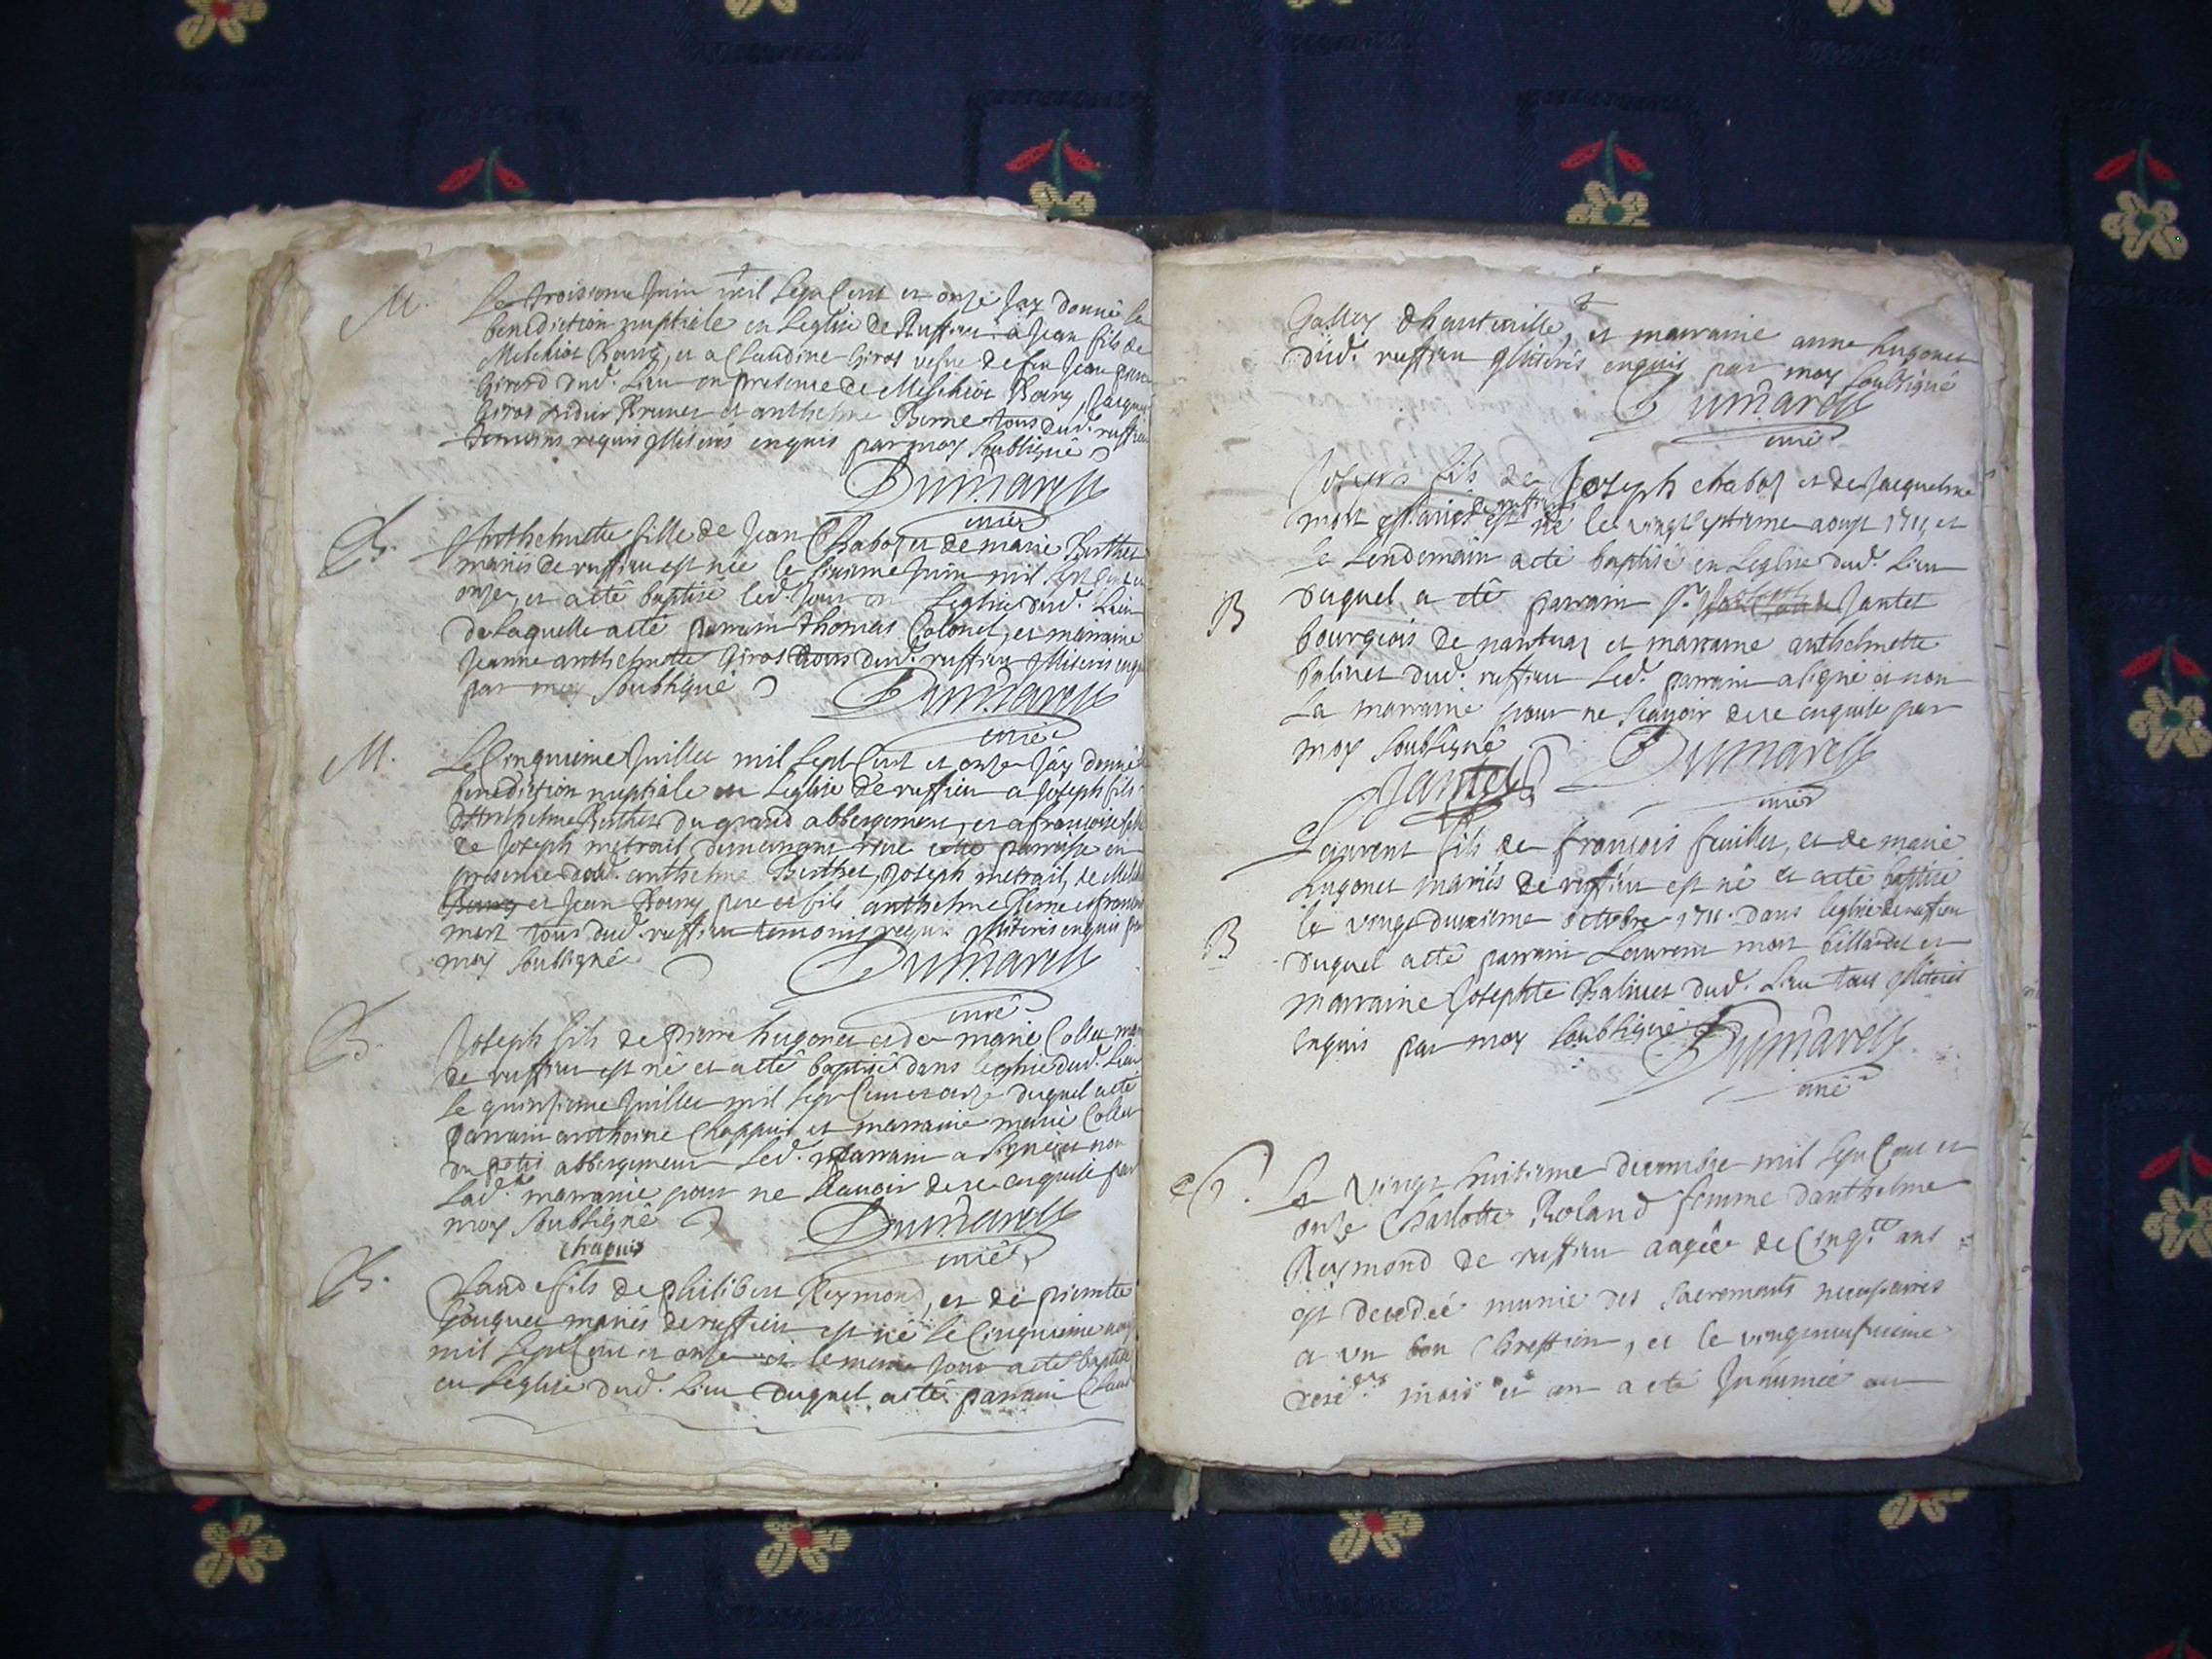 M. Le troisieme Juin mil sept Cent et onze Jay donné la
benediction nuptiale en Leglise de Ruffieu à Jean fils de
Melchior Bomy, et a Claudine Giros vefve de feu Jean pierre
Girerd dud. Lieu en presence de Melchior Bomy, Jacques
Giros didier Brunet et anthelme Berne tous dud. ruffieu
temoins requis illiterés enquis par moy soubsigné
Dumarest
curé
B. Anthelmette fille de Jean Chaboz et de marie Berthet
mariés de ruffieu est née le sixieme Juin mil sept Cent et
onze, et a eté baptisé led. Jour en Leglise dud. Lieu
de Laquelle a eté parrain thomas Colonel, et marraine
Jeanne anthelmette Giros tous dud. ruffieu illiterés enquis
par moy soubsigné
Dumarest
curé
M. Le Cinquieme Juillet mil sept Cent et onze Jay donné
benediction nuptiale en Leglise de ruffieu a Joseph fils
d'anthelme Berthet du grand abbergement, et a francoise fille
de Joseph metrail demeurant riere cette parroisse en
presence dud. anthelme Berthet, Joseph metrail, de
Bomy et Jean Bomy pere et fils anthelme Berne et francois
mort tous dud. ruffieu temoins requis illiterés enquis par
moy soubsigné
Dumarest
curé
B. Joseph fils de Pierre hugonet et de marie Collet
de ruffieu est né et a eté baptisé dans leglise dud. Lieu
le quinzieme Juillet mil sept Cent et onze duquel a eté
parrain anthoine Chappuis et marraine marie Collet
du petit abbergement Led. parrain a signé et non
Lad. marraine pour ne sçavoir de ce enquise par
moy soubsigné
Dumarest
chapuis
curé
B. Claude fils de philibert Reymond, et de pierrette
Gouquet mariés de ruffieu est né le Cinquieme
mil sept Cent et onze et le meme Jour a eté baptisé
en Leglise dud. Lieu duquel a eté parrain Claude
Gallay dhauteville, et marraine anne hugonet
dud. ruffieu illiterés enquis par moy soubsigné
Dumarest
curé
Joseph fils de Joseph chaboz et de Jacqueline
mort mariés de ruffieu est né le vingt septieme aoust 1711, et
le Lendemain a eté baptisé en Leglise dud. Lieu
B duquel a eté parrain Sr. Joseph Jantet
bourgeois de nantuaz et marraine anthelmette
Balivet dud. ruffieu Led. parrain a signé et non
La marraine pour ne sçavoir de ce enquise par
moy soubsigné
Dumarest
Jantet
curé
Laurent fils de francois feuillet, et de marie
hugonet mariés de ruffieu est né et a eté baptisé
B le vingt deuxieme octobre 1711. dans leglise de ruffieu
duquel a eté parrain Laurent mort billiardet et
marraine Josephte Balivet dud. Lieu tous illiterés
enquis par moy soubsigné
Dumarest
curé
Le vingt huitieme decembre mil sept Cent et
onze Charlotte Roland femme danthelme
Reymond de ruffieu aagée de Cinqte ans
est decedée munie des sacrements necessaires
a un bon Chrestien, et le vingtneufvieme
desd. mois et an a eté Inhumée au